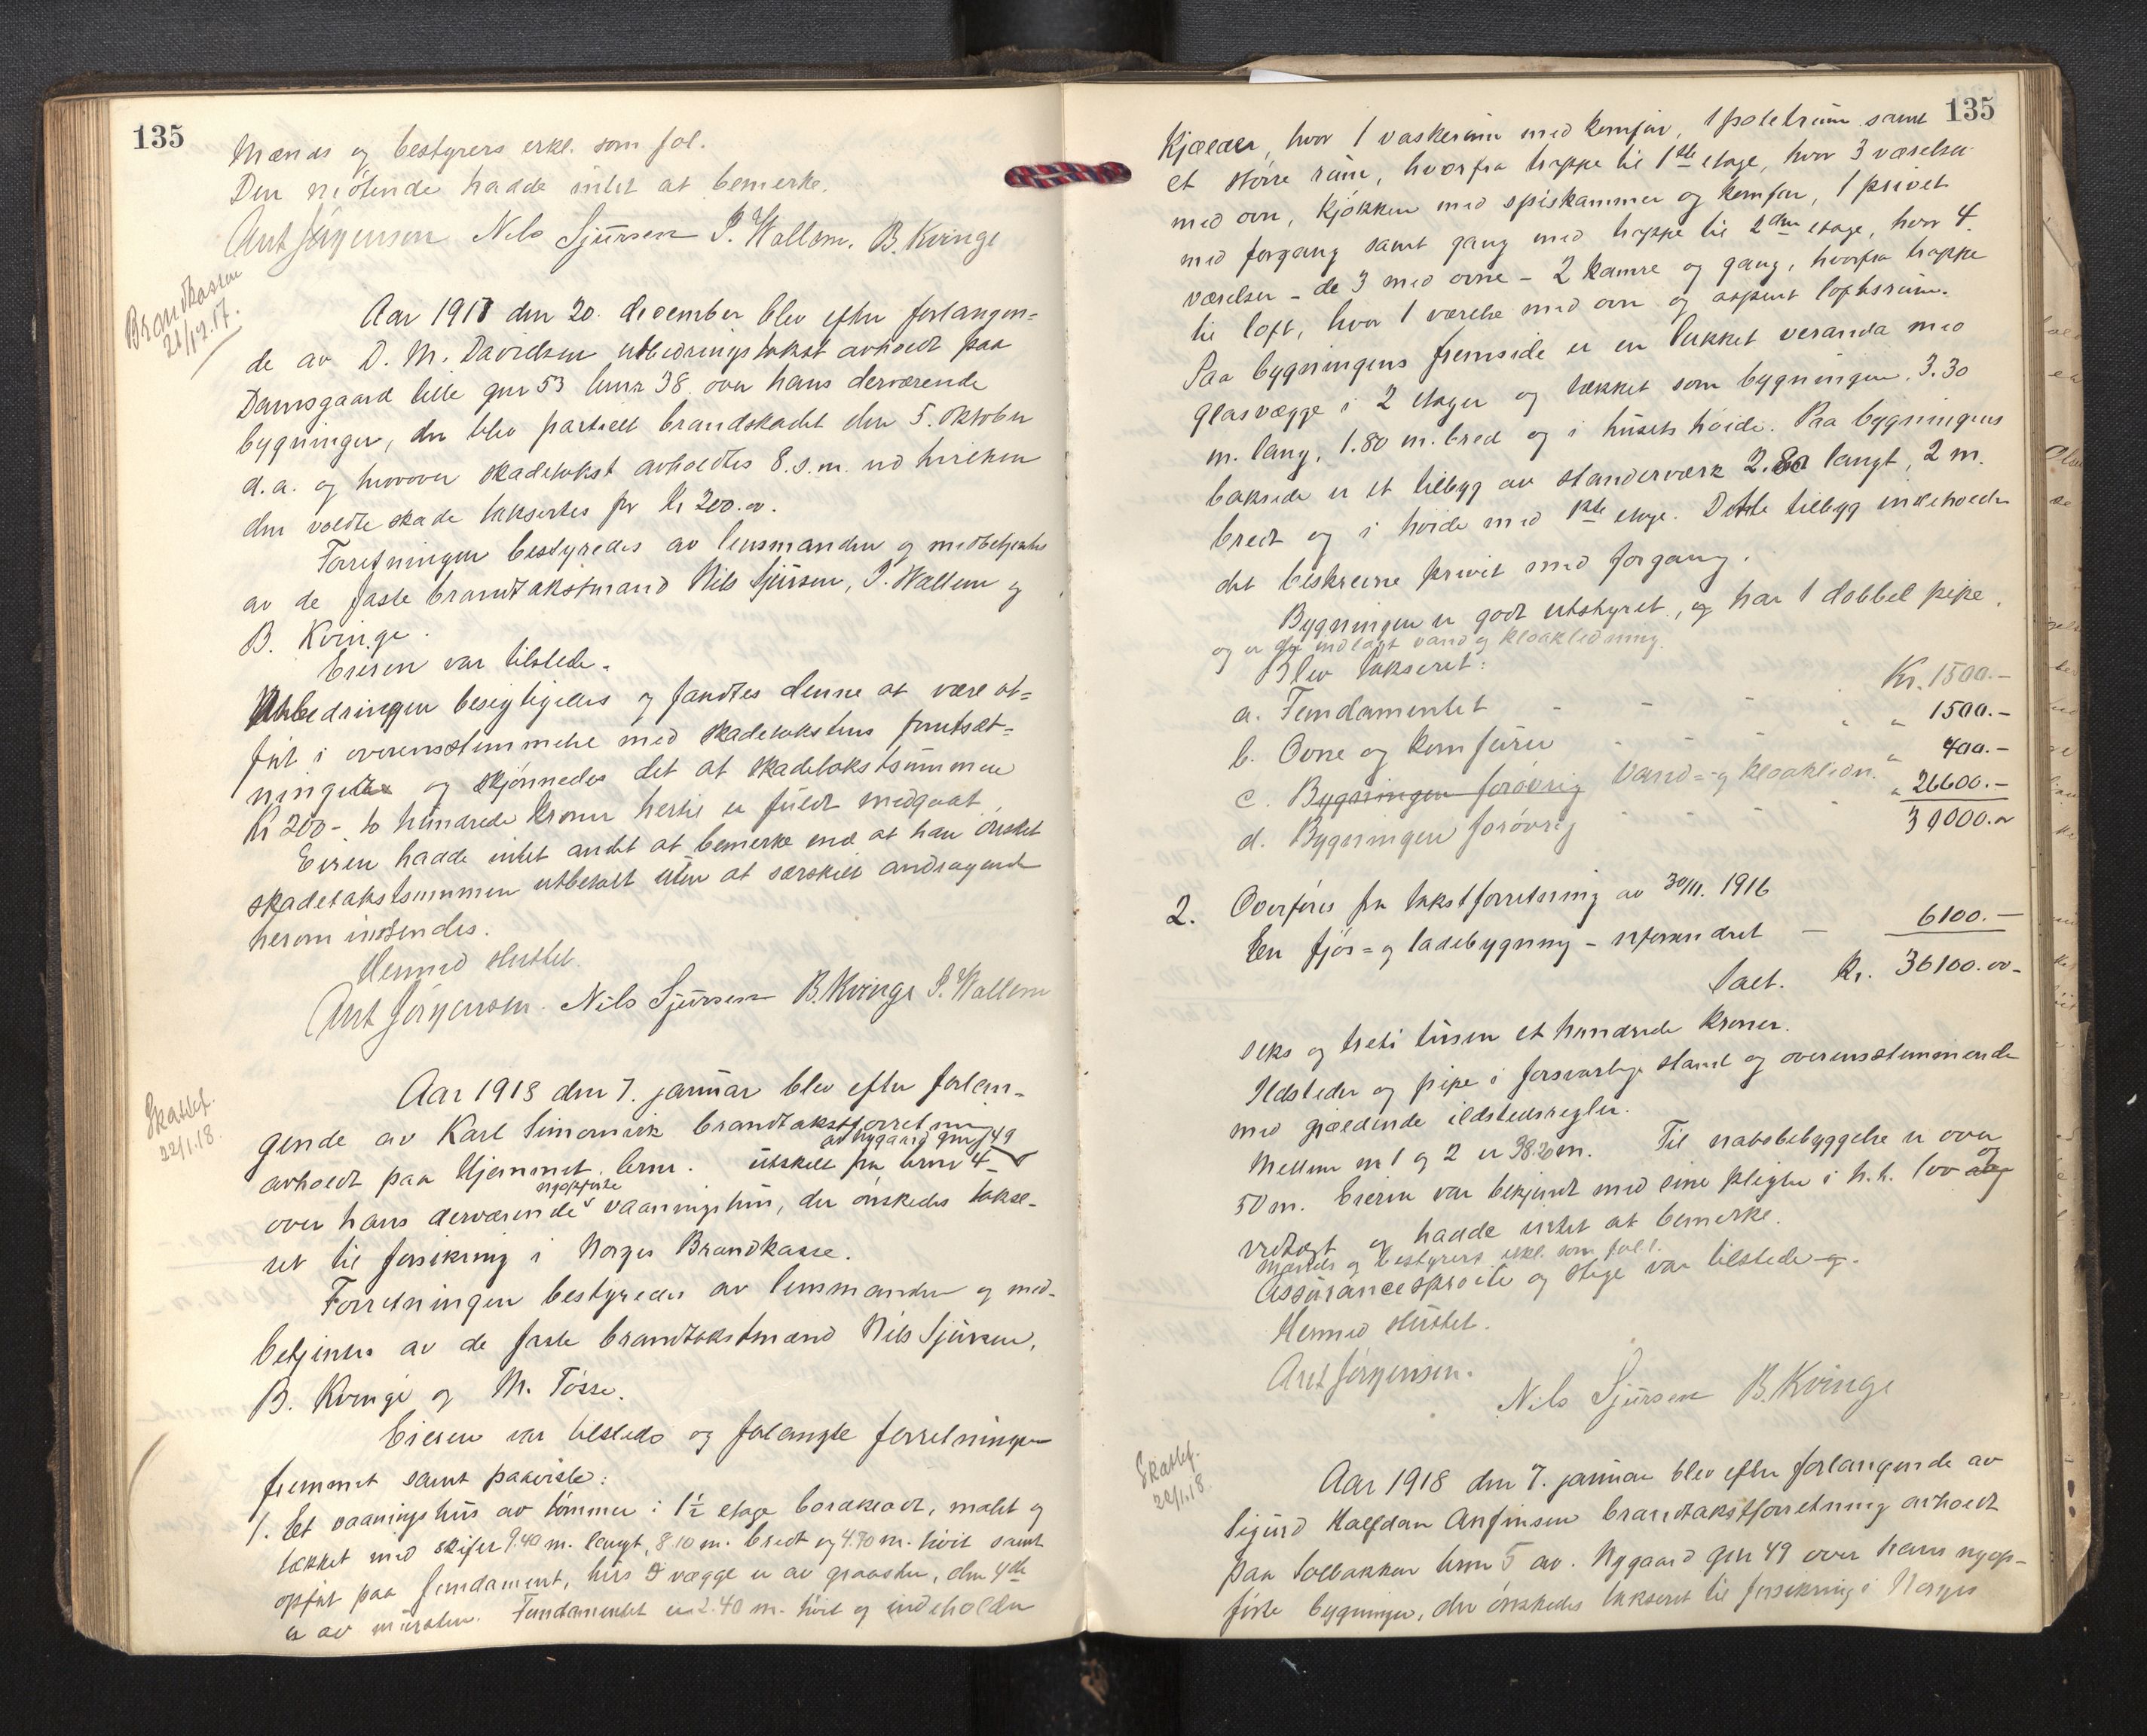 135
Mænds og bestyrers erkl. som fol.
Den møtende hadde intet at bemerke.
Ant Jørgensen Nils Sjursen P. Wallem. B. Kvinge
Brandkassen
21/12.17.
Aar 1917 den 20. december blev efter forlangen=
de av D. M. Davidsen utbedringstakst avholdt paa
Damsgaard lille gnr 53 bnr 38 over hans derværende
bygninger, der blev partielt brandskadet den 5. oktober
d.a. og hvorover skadetakst avholdtes 8. s.m. ved hvilken
den voldte skade taksertes for kr 200.00.
Forretningen bestyredes av lensmanden og medbetjentes
av de faste brandtakstmænd Nils Sjursen, P. Wallem og
B. Kvinge.
Eieren var tilstede.
Utbedringen besigtigedes og fandtes denne at være ut=
ført i overensstemmelse med skadetakstens forutsæt=
ninger og skjønnedes det at skadetakstsummen
Kr 200- to hundrede kroner hertil er fuldt medgaat.
Eieren hadde intet andet at bemerke end at han ønsket
skadetakstsummen utbetalt uten at særskilt andragende
herom indsendes.
Hermed sluttet.
Ant Jørgensen. Nils Sjursen B. Kvinge P. Wallem
Skattef.
22/1.18.
Aar 1918 den 7. januar blev efter forlan=
gende av Karl Simonvik brandtakstforretning
av Nygaard gnr 49
avholdt paa Hjemmet bnr. utskilt fra bnr 4
nyopførte
over hans derværende vaaningshus, der ønskedes takse=
ret til forsikring i Norges Brandkasse.
Forretningen bestyredes av lensmanden og med=
betjentes av de faste brandtakstmænd Nils Sjursen,
B. Kvinge og M. Tösse.
Eieren var tilstede og forlangte forretningen
fremmet samt paaviste:
1. Et vaaningshus av tømmer i 1½ etage bordklædt, malet og
tækket med skifer 9.40 m. langt, 8.10 m. bredt og 4.70 m. høit samt
opført paa fundament, hvis 3 vægge er av graasten, den 4de
er av mursten. Fundamentet er 2.40 m. høit og indeholder
135
Kjælder, hvor 1 vaskerum med komfur, 1 potetrum samt
et større rum, hvorfra trappe til 1ste etage, hvor 3 værelser
med ovn, kjøkken med spiskammer og komfur, 1 privet
med forgang samt gang med trappe til 2den etage, hvor 4
værelser - de 3 med ovne - 2 kamre og gang, hvorfra trappe
til loft, hvor 1 værelse med ovn og aapent loftsrum.
Paa bygningens fremside er en lukket veranda med
glasvægge i 2 etager og tækket som bygningen, 3.30
m. lang, 1.80 m. bred og i husets høide. Paa bygningens
bakside er et tilbyg av standerverk 2.80 langt, 2 m.
bredt og i høide med 1ste etage. Dette tilbyg indeholder
det beskrevne privet med forgang.
Bygningen er godt utstyret, og har 1 dobbel pipe.
og er der indlagt vand og kloakledning.
Blev takseret:
a. Fundamentet - - Kr. 1500.-
b. Ovne og komfurer - - - " 1500.-
c. Bygningen forøvrig Vand= og kloakledn. " 400.-
d. Bygningen forøvrig " 26600.-
30000.00
2. Overføres fra takstforretning av 30/11. 1916
En fjøs= og ladebygning - uforandret - 6100.-
Ialt. Kr. 36100.00-
seks og treti tusen et hundrede kroner.
Ildsteder og pipe i forsvarlig stand og overensstemmende
med gjældende ildstedsregler.
Mellem nr 1 og 2 er 38.20 m. Til nabobebyggelse er over
50 m. Eieren var bekjendt med sine pligter i h.t. lov og
vedtægt og hadde intet at bemerke.
Mænds og bestyrers erkl. som fol.
Assurancesprøite og stige var tilstede.
Hermed sluttet.
Ant Jørgensen.
Nils Sjursen B. Kvinge
Skattef.
22/1.18.
Aar 1918 den 7. januar blev efter forlangende av
Sigurd Halfdan Anfinsen brandtakstforretning avholdt
paa Solbakken bnr 5 av Nygaard gnr 49 over hans nyop=
førte bygninger, der ønskedes takseret til forsikring i Norges